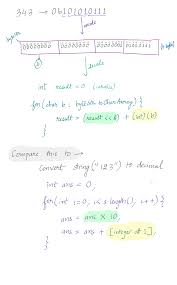 343 → 0b101010111
bytes
00000000 00000000 00000001 01010111
int result = 0
for (char b : bytes in byteArray) {
result = (result << 8) + (int)(b)
}
Compare this to →
convert string ("123") to decimal
int ans = 0;
for (int i=0, i< s.length(); i++) {
ans = ans × 10,
ans = ans + [integer at i],
}